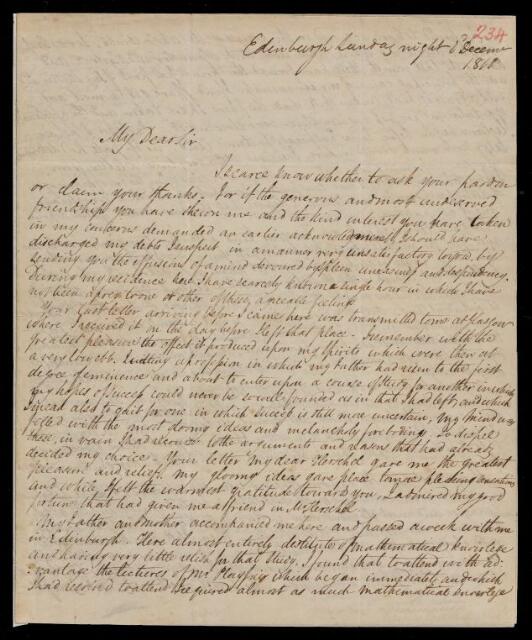 234
Edinburgh Sunday night 1 Decem
18
My Dear Sir
I scarce know whether to ask your pardon
or claim your thanks. For if the generous and most undeserved
friendship you have shewn me and the kind interest you have taken
in my concerns demanded an earlier acknowledgment I should have
discharged my debt I suspect in a manner very unsatisfactory to you by
sending you the effusions of a mind devoured by spleen uneasiness and despondency.
During my residence here I have scarcely known a single hour in which I have
not been a prey to one or other of these agreeable feelings
Your last letter arriving before I came here was transmitted to me at Glasgow
where I received it on the day before I left that place. I remember with the
greatest pleasure the effect it produced upon my spirits which were then at
a very low ebb. Quitting a profession in which my Father had risen to the first
degree of eminence and about to enter upon a course of study for another in which
my hopes of success could never be so well founded as in that I had left and which
I mean also to quit for one in which success is still more uncertain. My mind was
filled with the most stormy ideas and melancholy forboding. To dispel
these, in vain I had recourse to the arguments and reasons that had already
decided my choice. Your letter My dear Herschel gave me the greatest
pleasure and relief. My gloomy ideas gave place to more pleasing
and while I felt the warmest gratitude towards you, I admired my good
fortune that had given me a friend in Mr Herschel
My Father and mother accompanied me here and passed a week with me
in Edinburgh. Here almost entirely destitute of mathematical knowledge
and having very little relish for that study, I found that to attend with ad-
vantage the lectures of Mr Playfair which began immediately and which
I had resolved to attend required almost as much mathematical knowledge